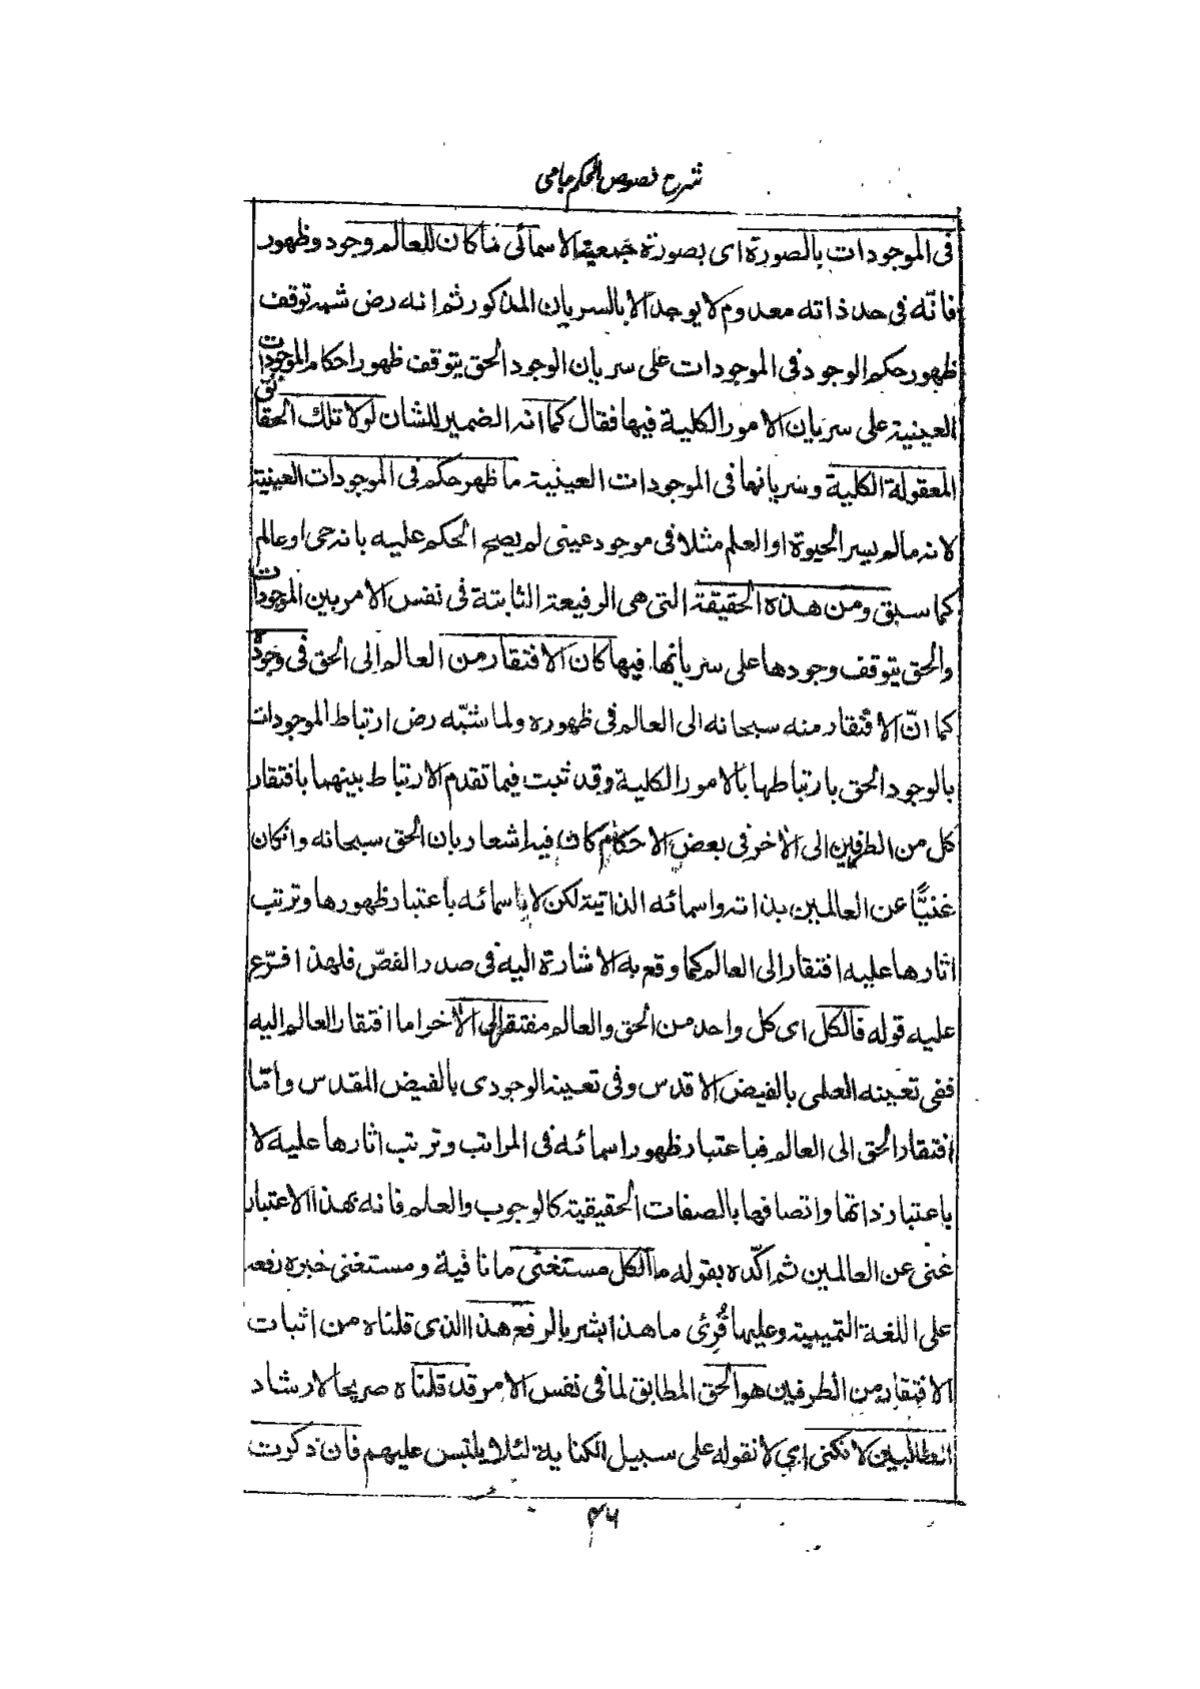 شرح فصوص الحكم جامى
فى الموجودات بالصورة اى بصورة جمعية الاسمائى ما كان للعالم وجود وظهور
فانّه فى حد ذاته معدوم لا يوجد الا بالسريان المذكور ثم انه رض شبه توقف
ظهور حكم الوجود فى الموجودات على سريان الوجود الحق يتوقف ظهور احكام الموجودات
العينية على سريان الامور الكلية فيها فقال كما انه الضمير للشان لولا تلك الحقائق
المعقولة الكلية وسريانها فى الموجودات العينية ما ظهر حكم فى الموجودات العينية
لانه مالم يسر الحيوة او العلم مثلا فى موجود عينى لم يصح الحكم عليه بانه حى او عالم
كما سبق ومن هذه الحقيقة التى هى الرفيعة الثابتة فى نفس الامر بين الموجودات
والحق يتوقف وجودها على سريانها فيها كان الافتقار من العالم الى الحق فى وجوده
كما انّ الافتقار منه سبحانه الى العالم فى ظهوره ولما شبّه رض ارتباط الموجودات
بالوجود الحق بارتباطها بالامور الكلية وقد ثبت فيما تقدم الارتباط بينهما بافتقار
كل من الطرفين الى الآخر فى بعض الاحكام كان فيه اشعار بان الحق سبحانه وانكان
غنيًّا عن العالمين بذاته واسمائه الذاتية لكن لا باسمائه باعتبار ظهورها وترتب
اثارها عليه افتقار الى العالم كما وقع به الاشارة اليه فى صدر الفصّ فلهذا فرّع
عليه قوله فالكل اى كل واحد من الحق والعالم مفتقر الى الآخر اما افتقار العالم اليه
ففى تعينه العلمى بالفيض الاقدس وفى تعينه الوجودى بالفيض المقدس وامّا
افتقار الحق الى العالم فباعتبار ظهور اسمائه فى المراتب وترتب اثارها عليه لا
باعتبار ذاتها واتصافها بالصفات الحقيقية كالوجوب والعلم فانه بهذا الاعتبار
غنى عن العالمين ثم اكّده بقوله ما الكل مستغنى ما نافية ومستغنى خبره رفعه
على اللغة التميمية وعليها قُرئ ما هذا بشر بالرفع هذا الذى قلناه من اثبات
الافتقار من الطرفين هو الحق المطابق لما فى نفس الامر قد قلناه صريحا لارشاد
الطالبين لا نكنى اى لا نقوله على سبيل الكناية لئلا يلتبس عليهم فان ذكرت
٣٦